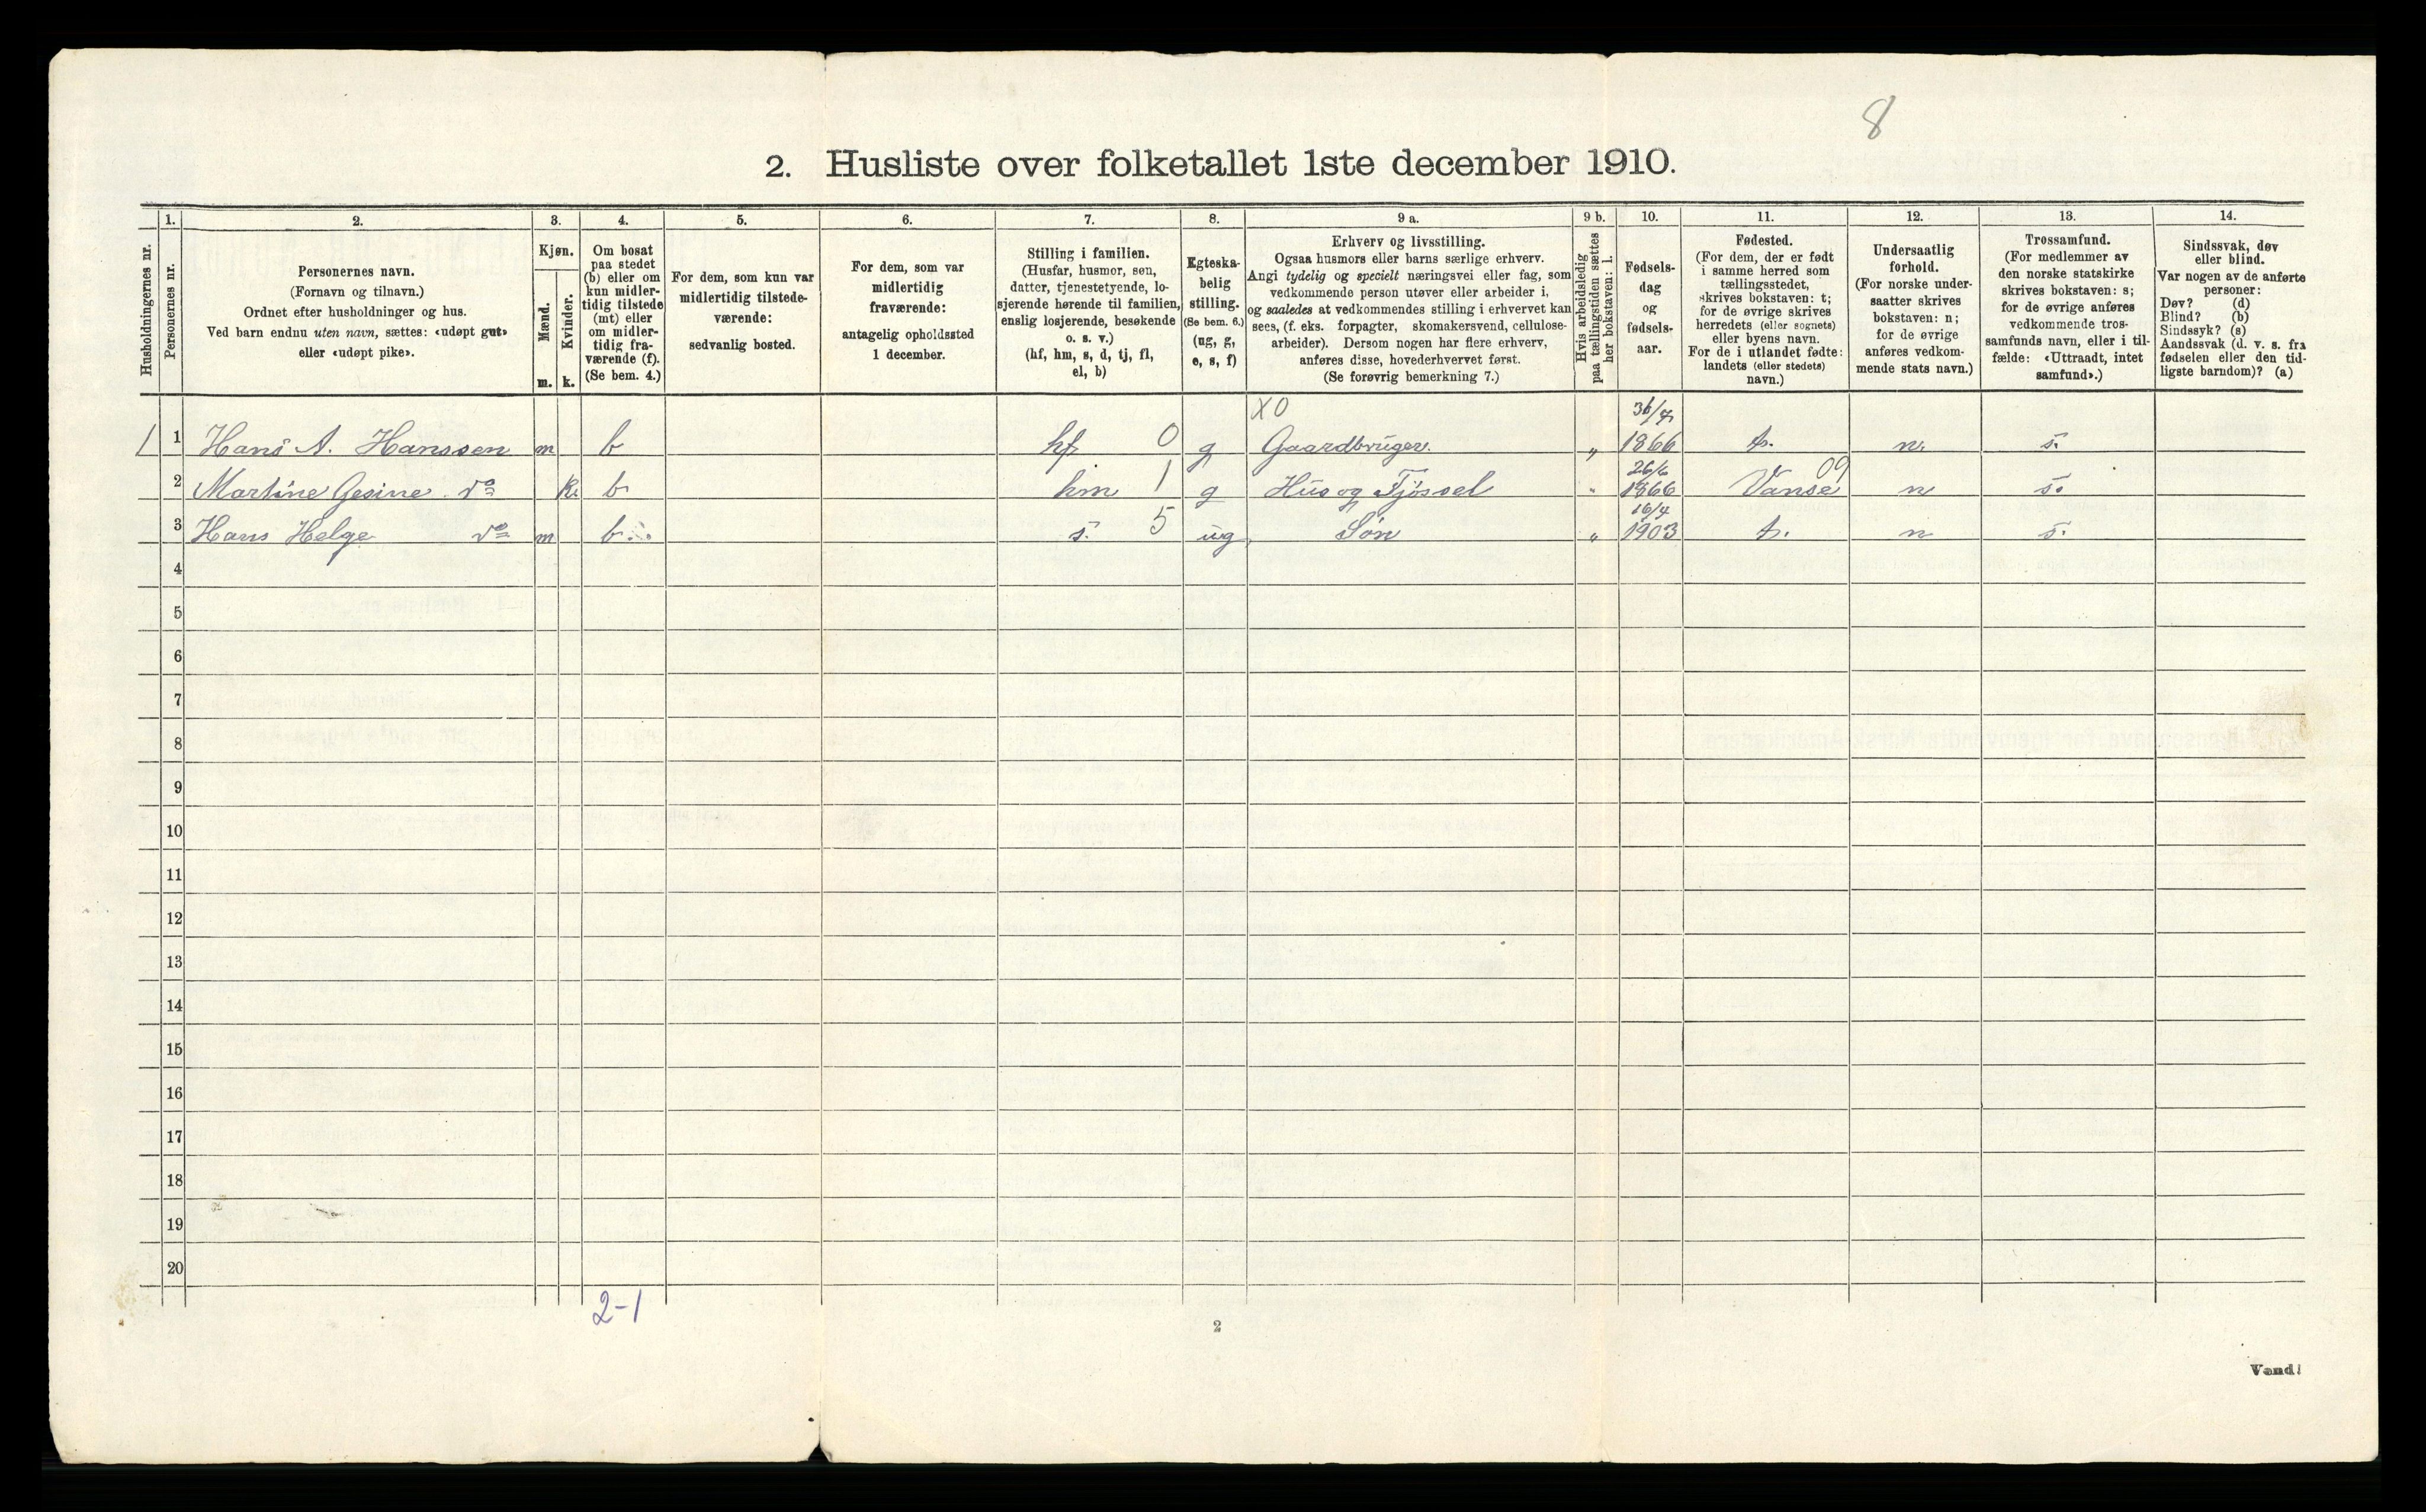 8
2. Husliste over folketallet 1ste december 1910.
Husholdningernes nr.
1. Personernes nr.
2. Personernes navn.
(Fornavn og tilnavn.)
Ordnet efter husholdninger og hus.
Ved barn endnu uten navn, sættes: «udøpt gut»
eller «udøpt pike».
3. Kjøn.
Mænd. m.
Kvinder. k.
4. Om bosat
paa stedet
(b) eller om
kun midler-
tidig tilstede
(mt) eller
om midler-
tidig fra-
værende (f).
(Se bem. 4.)
5. For dem, som kun var
midlertidig tilstede-
værende:
sedvanlig bosted.
6. For dem, som var
midlertidig
fraværende:
antagelig opholdssted
1 december.
7. Stilling i familien.
(Husfar, husmor, søn,
datter, tjenestetyende, lo-
sjerende hørende til familien,
enslig losjerende, besøkende
o. s. v.)
(hf, hm, s, d, tj, fl,
el, b)
8. Egteska-
belig
stilling.
(Se bem. 6.)
(ug, g,
e, s, f)
9 a. Erhverv og livsstilling.
Ogsaa husmors eller barns særlige erhverv.
Angi tydelig og specielt næringsvei eller fag, som
vedkommende person utøver eller arbeider i,
og saaledes at vedkommendes stilling i erhvervet kan
sees, (f. eks. forpagter, skomakersvend, cellulose-
arbeider). Dersom nogen har flere erhverv,
anføres disse, hovederhvervet først.
(Se forøvrig bemerkning 7.)
9 b. Hvis arbeidsledig
paa tællingstiden sættes
her bokstaven: l.
10. Fødsels-
dag
og
fødsels-
aar.
11. Fødested.
(For dem, der er født
i samme herred som
tællingsstedet,
skrives bokstaven: t;
for de øvrige skrives
herredets (eller sognets)
eller byens navn.
For de i utlandet fødte:
landets (eller stedets)
navn.)
12. Undersaatlig
forhold.
(For norske under-
saatter skrives
bokstaven: n;
for de øvrige
anføres vedkom-
mende stats navn.)
13. Trossamfund.
(For medlemmer av
den norske statskirke
skrives bokstaven: s;
for de øvrige anføres
vedkommende tros-
samfunds navn, eller i til-
fælde: «Uttraadt, intet
samfund».)
14. Sindssvak, døv
eller blind.
Var nogen av de anførte
personer:
Døv? (d)
Blind? (b)
Sindssyk? (s)
Aandssvak (d. v. s. fra
fødselen eller den tid-
ligste barndom)? (a)
X0
1 1 Hans A. Hanssen m b hf 0 g Gaardbruger. „ 1866 t. n. s.
2 Martine Gesine do k. b hm 1 g Hus og Fjøssel „ 26/6 1866 Vanse 09 n s.
3 Hans Helge do m b. s. 5 ug Søn „ 16/4 1903 t. n s.
4
5
6
7
8
9
10
11
12
13
14
15
16
17
18
19
20
2-1
2
Vend!